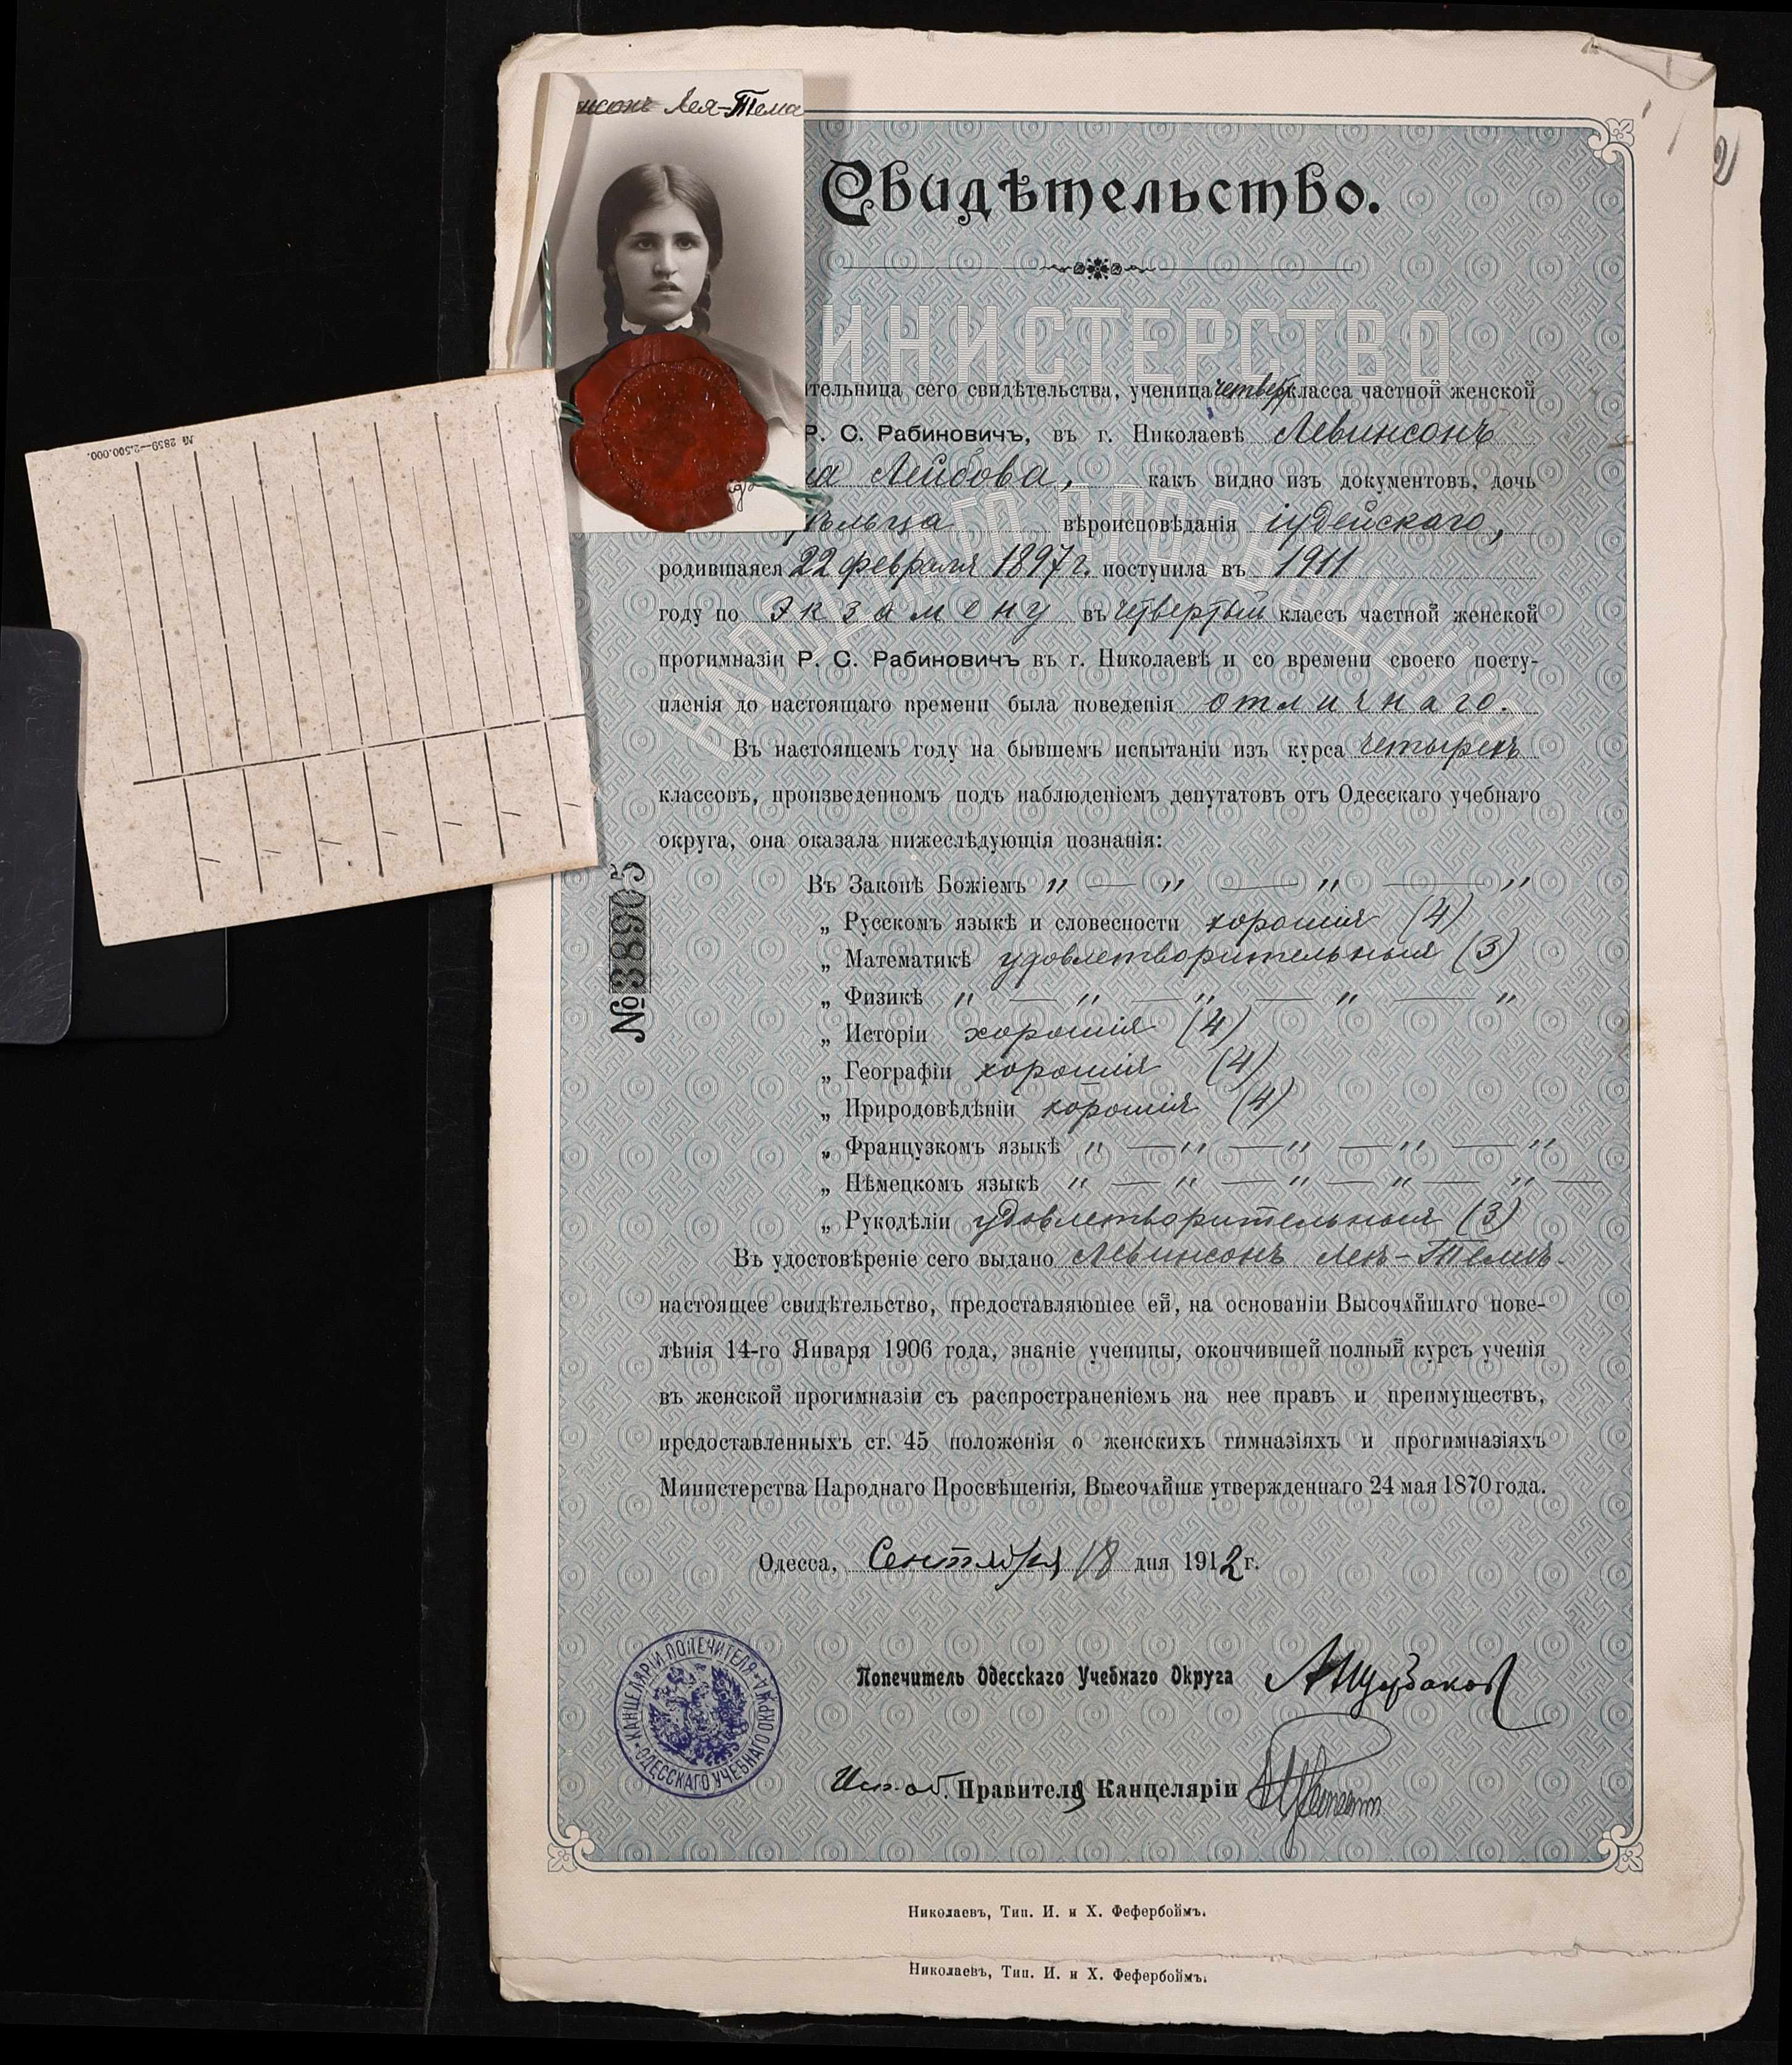 Лея-Тема
Свидѣтельство.
сего свидѣтельства, ученица класса частной женской
Р. С. Рабиновичъ, въ г. Николаевѣ Левинсонъ
Лейбова, какъ видно изъ документовъ, дочь
вѣроисповѣданія іудейскаго,
родившаяся 22 февраля 1897 г. поступила въ 1911
году по экзамену въ четвертый классъ частной женской
прогимназіи Р. С. Рабиновичъ въ г. Николаевѣ и со времени своего посту-
пленія до настоящаго времени была поведенія отличнаго.
Въ настоящемъ году на бывшемъ испытаніи изъ курса четырехъ
классовъ, произведенномъ подъ наблюденіемъ депутатовъ отъ Одесскаго учебнаго
округа, она оказала нижеслѣдующія познанія:
Въ Законѣ Божіемъ " — " — " — "
„ Русскомъ языкѣ и словесности хорошія (4)
„ Математикѣ удовлетворительныя (3)
„ Физикѣ " — " — " — " — "
„ Исторіи хорошія (4)
„ Географіи хорошія (4)
„ Природовѣдѣніи хорошія (4)
„ Французкомъ языкѣ " — " — " — " — "
„ Нѣмецкомъ языкѣ " — " — " — " — " —
„ Рукодѣліи удовлетворительныя (3)
Въ удостовѣреніе сего выдано Левинсонъ Леѣ-Темѣ
настоящее свидѣтельство, предоставляющее ей, на основаніи Высочайшаго пове-
лѣнія 14-го Января 1906 года, знаніе ученицы, окончившей полный курсъ ученія
въ женской прогимназіи съ распространеніемъ на нее правъ и преимуществъ,
предоставленныхъ ст. 45 положенія о женскихъ гимназіяхъ и прогимназіяхъ
Министерства Народнаго Просвѣщенія, Высочайше утвержденнаго 24 мая 1870 года.
Одесса, Сентября 18 дня 1912 г.
Попечитель Одесскаго Учебнаго Округа
Исп. об. Правителя Канцеляріи
КАНЦЕЛЯРІИ ПОПЕЧИТЕЛЯ
ОДЕССКАГО УЧЕБНАГО ОКРУГА
№ 38905
№ 2859—2.500.000.
Николаевъ, Тип. И. и Х. Фефербоймъ.
Николаевъ, Тип. И. и Х. Фефербоймъ.
2